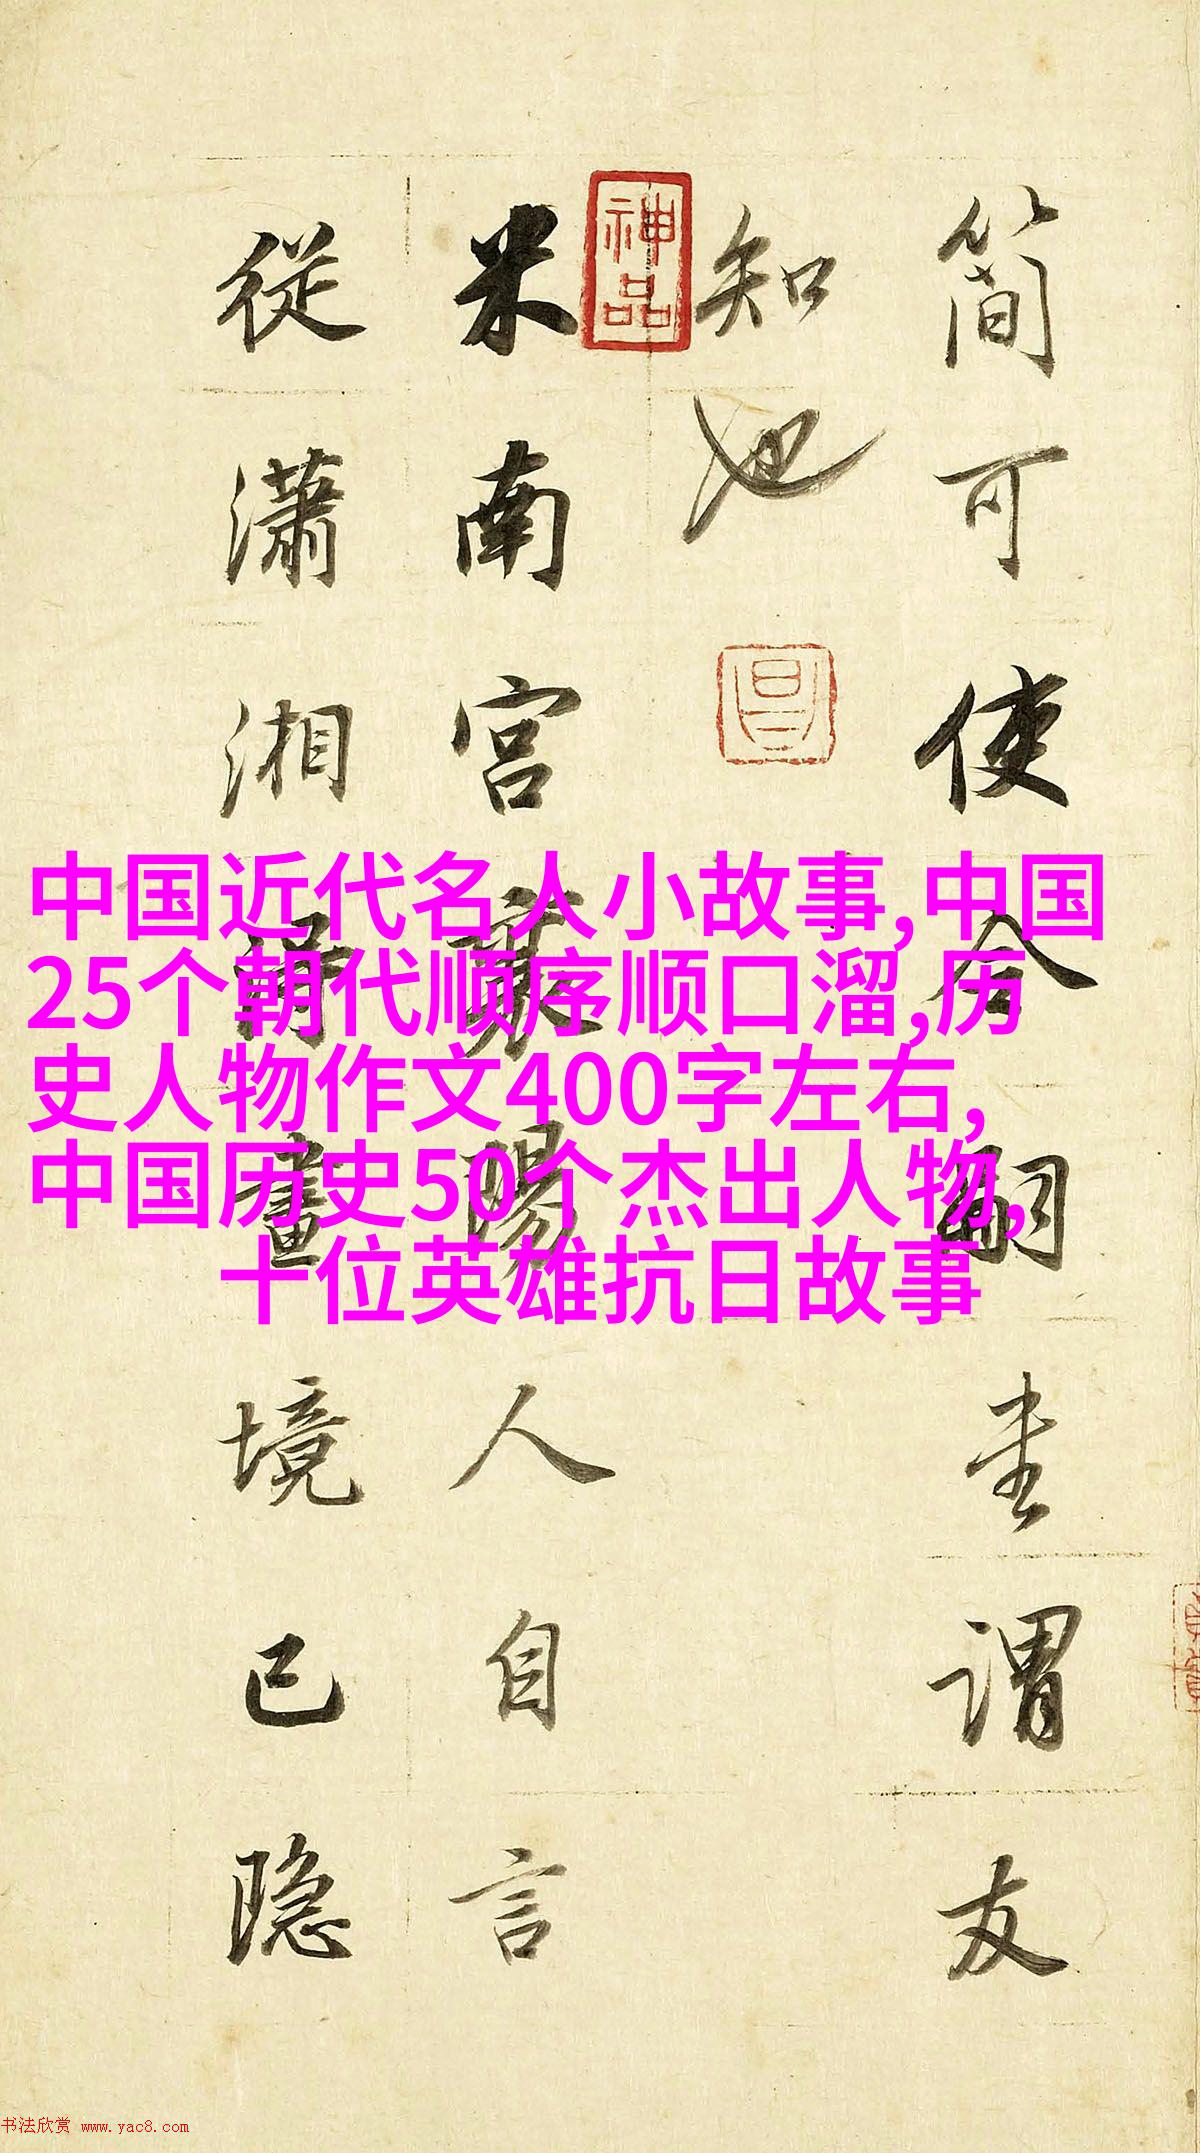 简可使合嗣謂友
知也
米南宮襄陽人自言
從瀟湘得畫境已隐
神品
昌
中国近代名人小故事,中国
25个朝代顺序顺口溜,历
史人物作文400字左右,
中国历史50个杰出人物,
十位英雄抗日故事
书法欣赏 www.yac8.com